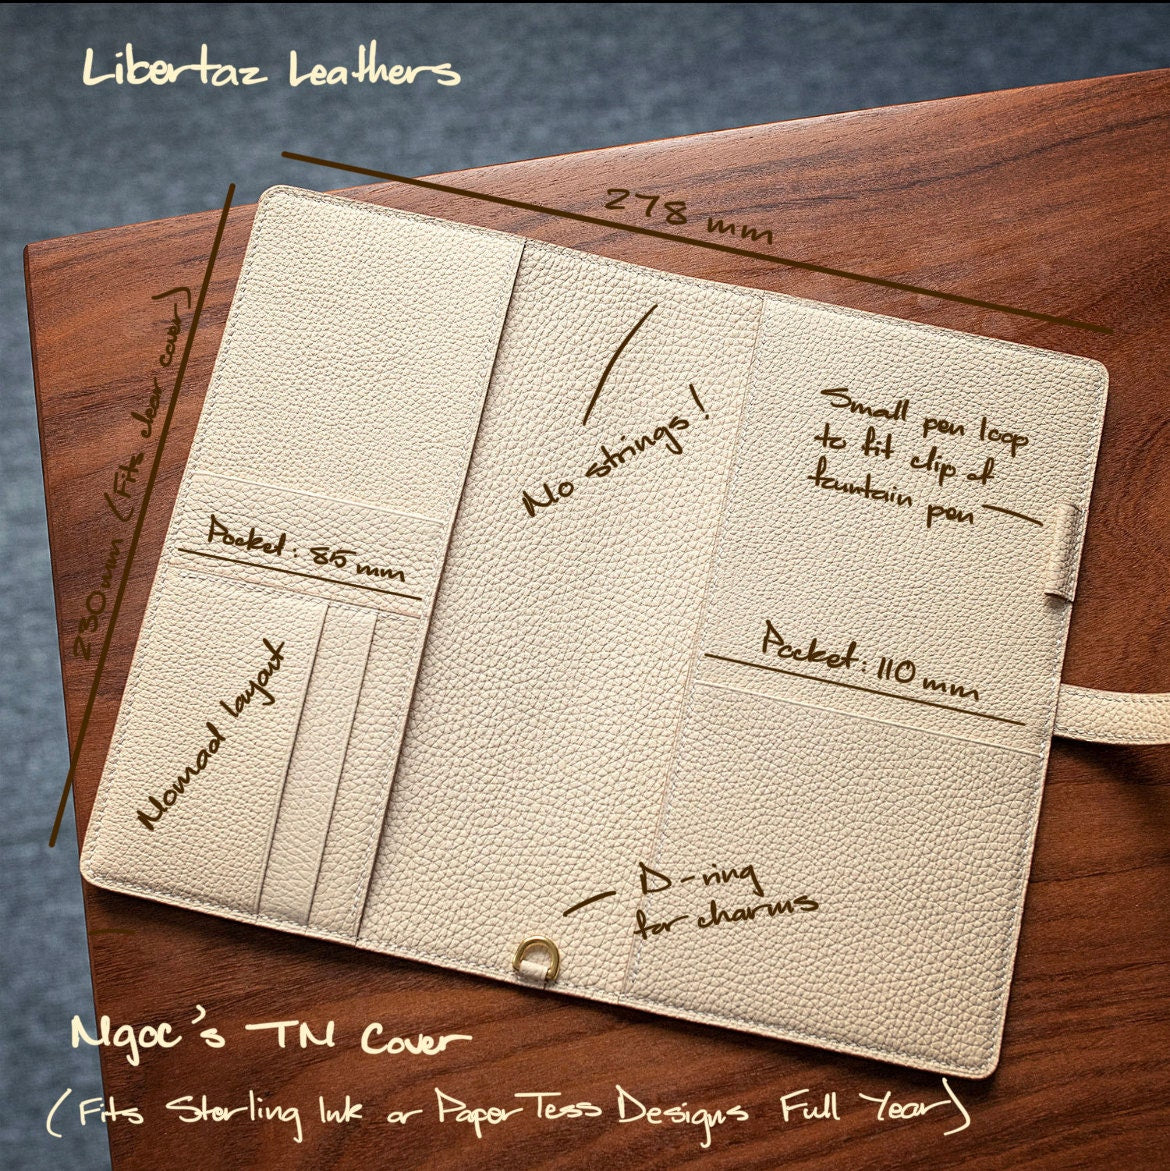 Libertaz Leathers
278 mm
230mm (Fits clear cover)
No strings!
Small pen loop
to fit clip of
fountain pen
Pocket: 85 mm
Pocket: 110 mm
Nomad layout
D-ring
for charms
Ngoc's TN Cover
(Fits Sterling Ink or PaperTess Designs Full Year)